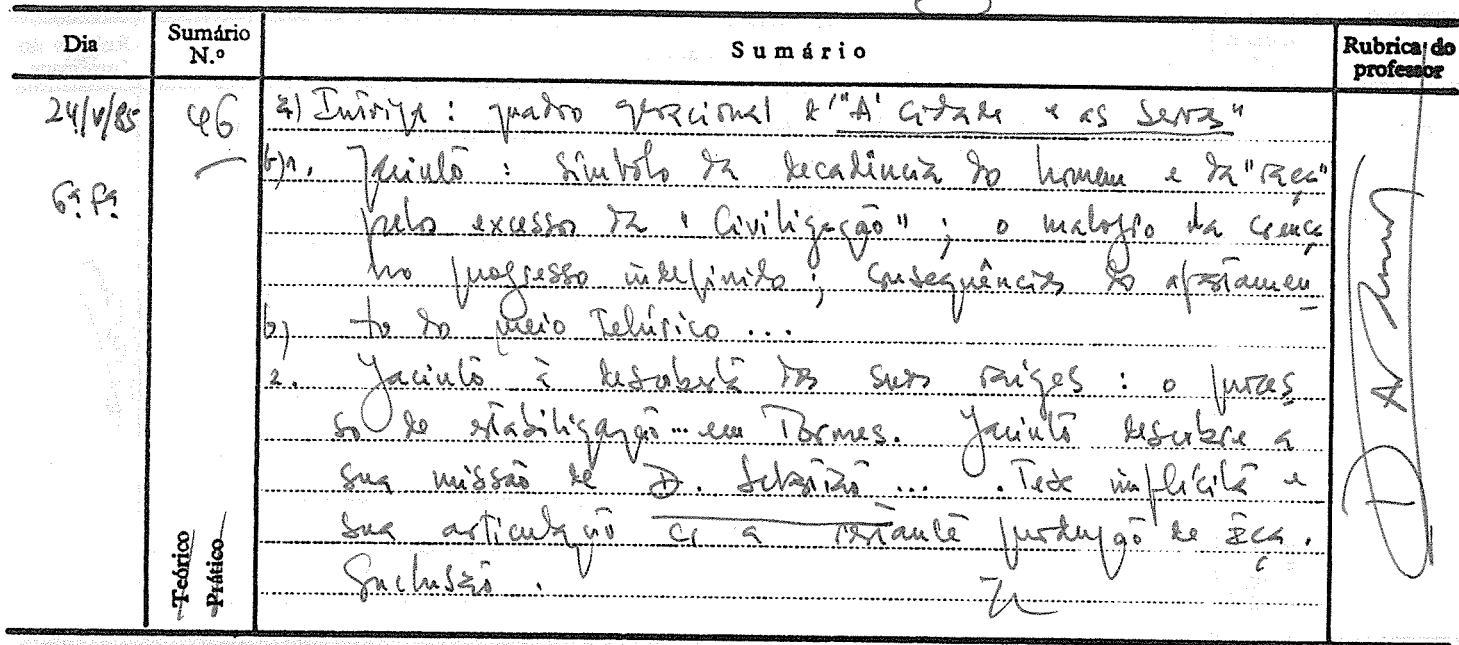 Dia Sumário N.º Sumário Rubrica do professor
24/V/85 46 a) Intriga: quadro geracional d'"A Cidade e as Serras"
6ª fª b)1. Jacinto: símbolo da decadência do homem e da "raça"
pelo excesso da "Civilização"; o malogro da crença
no progresso indefinido; consequências do afastamen
b) to do meio telúrico...
2. Jacinto à descoberta das suas raízes: o proces
so de estabilização... em Tormes. Jacinto descobre a
sua missão de D. Sebastião.... Tese implícita e
sua articulação c/ a restante produção de Eça.
Conclusão.
Teórico
Prático